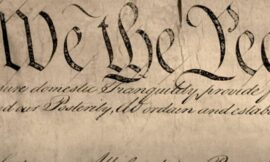 We the Peo
ure domestic Tranquility, provide f
nd our Posterity, do ordain and estab